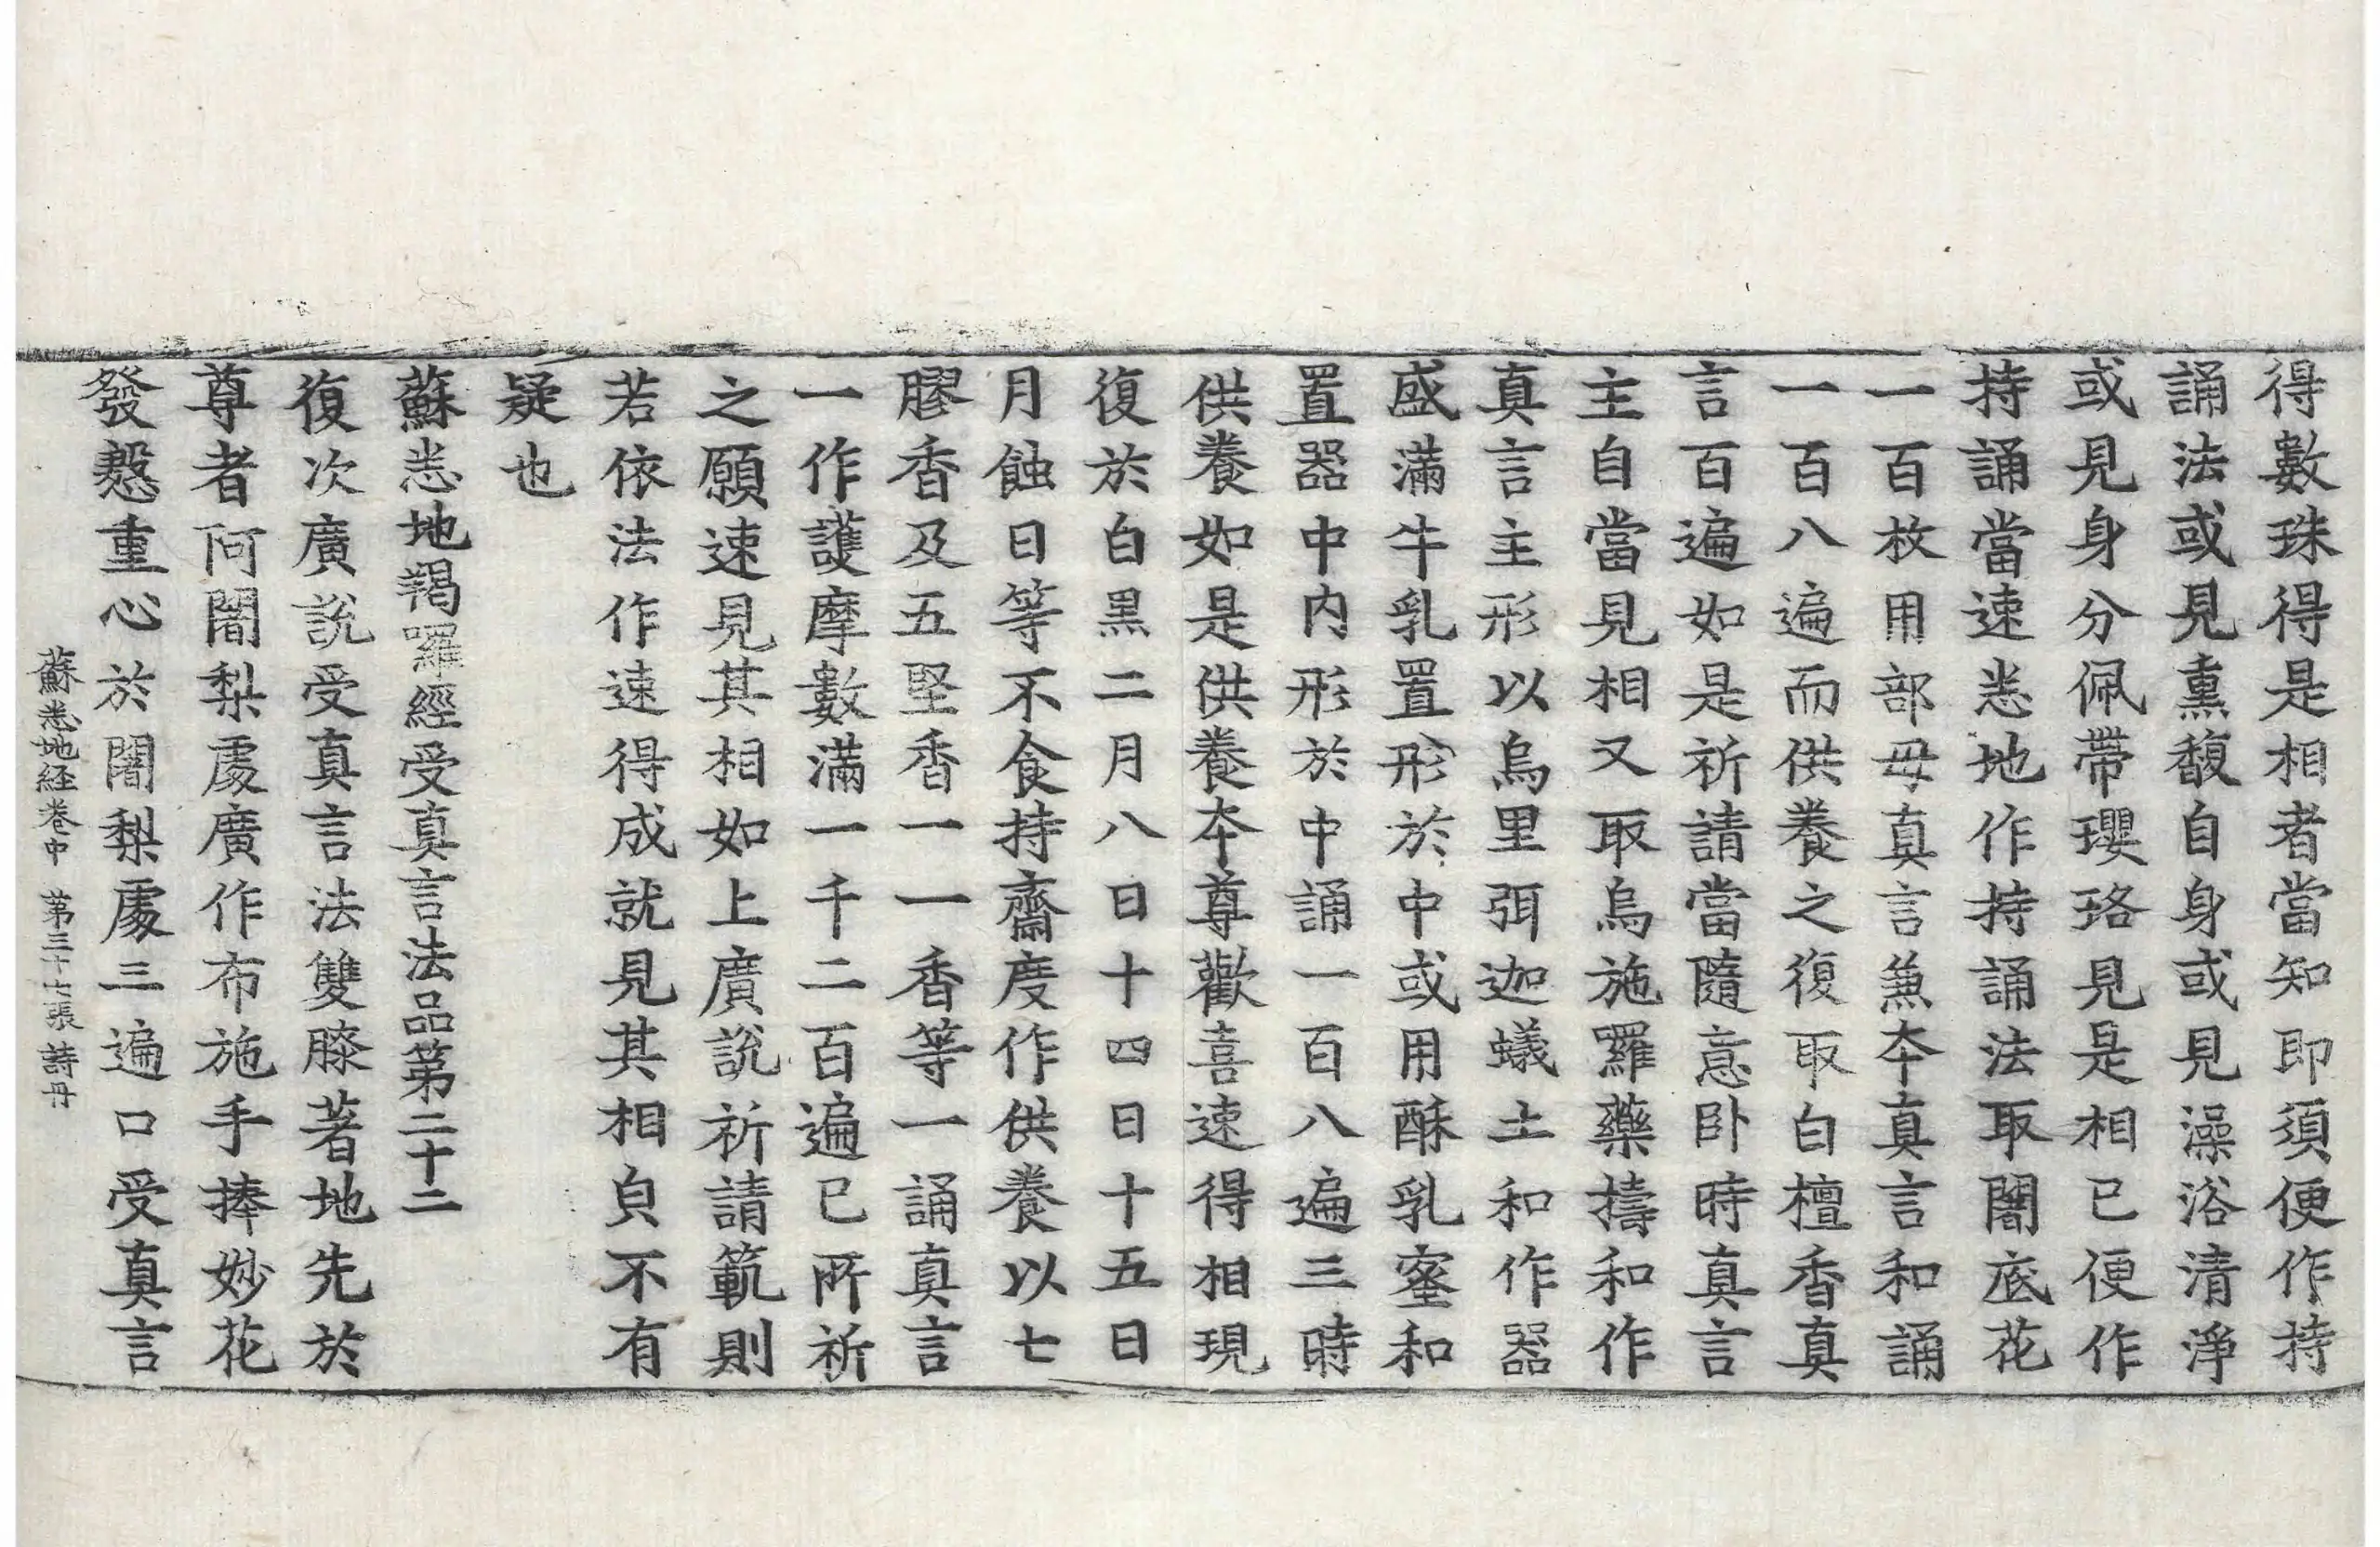 得數珠得是相者當知即須便作持
誦法或見熏馥自身或見澡浴清淨
或見身分佩帶瓔珞見是相已便作
持誦當速悉地作持誦法取闍底花
一百枚用部母真言兼本真言和誦
一百八遍而供養之復取白檀香真
言百遍如是祈請當隨意卧時真言
主自當見相又取烏施羅藥擣和作
真言主形以烏里弭迦蟻土和作器
盛滿牛乳置形於中或用酥乳蜜和
置器中內形於中誦一百八遍三時
供養如是供養本尊歡喜速得相現
復於白黑二月八日十四日十五日
月蝕日等不食持齋度作供養以七
膠香及五堅香一一香等一誦真言
一作護摩數滿一千二百遍已所祈
之願速見其相如上廣說祈請範則
若依法作速得成就見其相皃不有
疑也
蘇悉地羯羅經受真言法品第二十二
復次廣說受真言法雙膝著地先於
尊者阿闍梨處廣作布施手捧妙花
發慇重心於闍梨處三遍口受真言
蘇悉地経卷中 第三十七張 詩冊